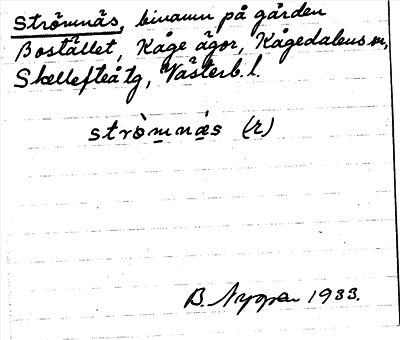 Strömnäs, binamn på gården
Bostället, Kåge ägor, Kågedalens sn,
Skellefteå tg, Västerb. l.
strò̀mnä́s (r)
B. Nyopen 1933.